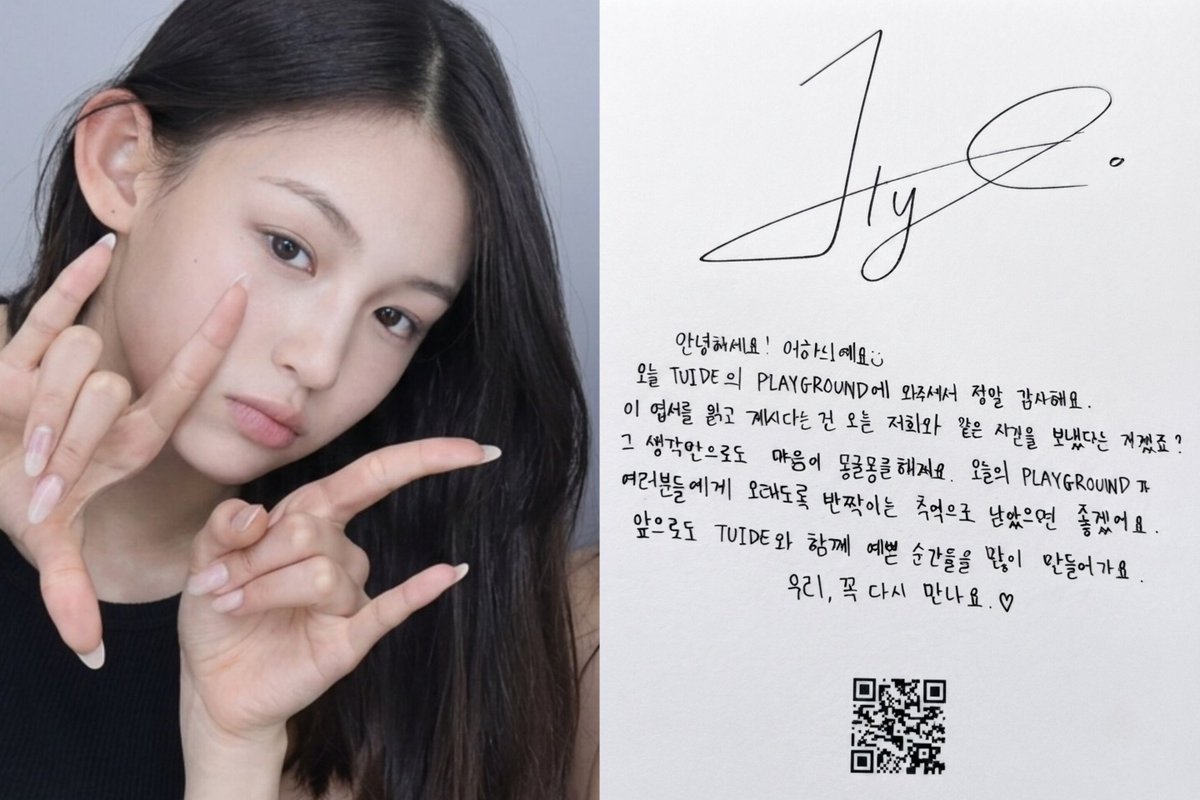 안녕하세요! 어하늬예요
오늘 TUIDE의 PLAYGROUND에 와주셔서 정말 감사해요.
이 엽서를 읽고 계시다는 건 오늘 저희와 같은 시간을 보냈다는 거겠죠?
그 생각만으로도 마음이 몽글몽글해져요. 오늘의 PLAYGROUND가
여러분들에게 오래도록 반짝이는 추억으로 남았으면 좋겠어요.
앞으로도 TUIDE와 함께 예쁜 순간들을 많이 만들어가요.
우리, 꼭 다시 만나요.♡